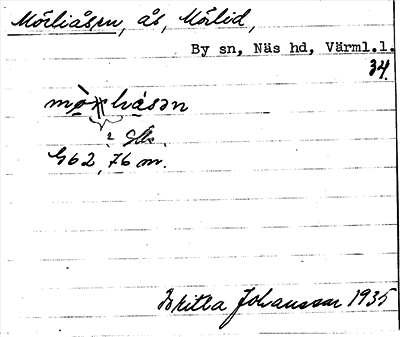 Mörliåsen, ås, Mörlid,
By sn, Näs hd, Värml.l.
34
G62, 76 m.
Britta Johansson 1935